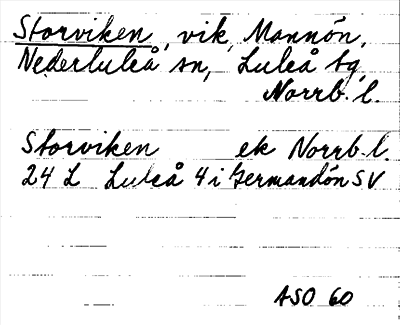 Storviken, vik, Mannön,
Nederluleå sn, Luleå tg,
Norrb. l.
Storviken ek Norrb. l.
24 L Luleå 4 i Germandön SV
ASO 60